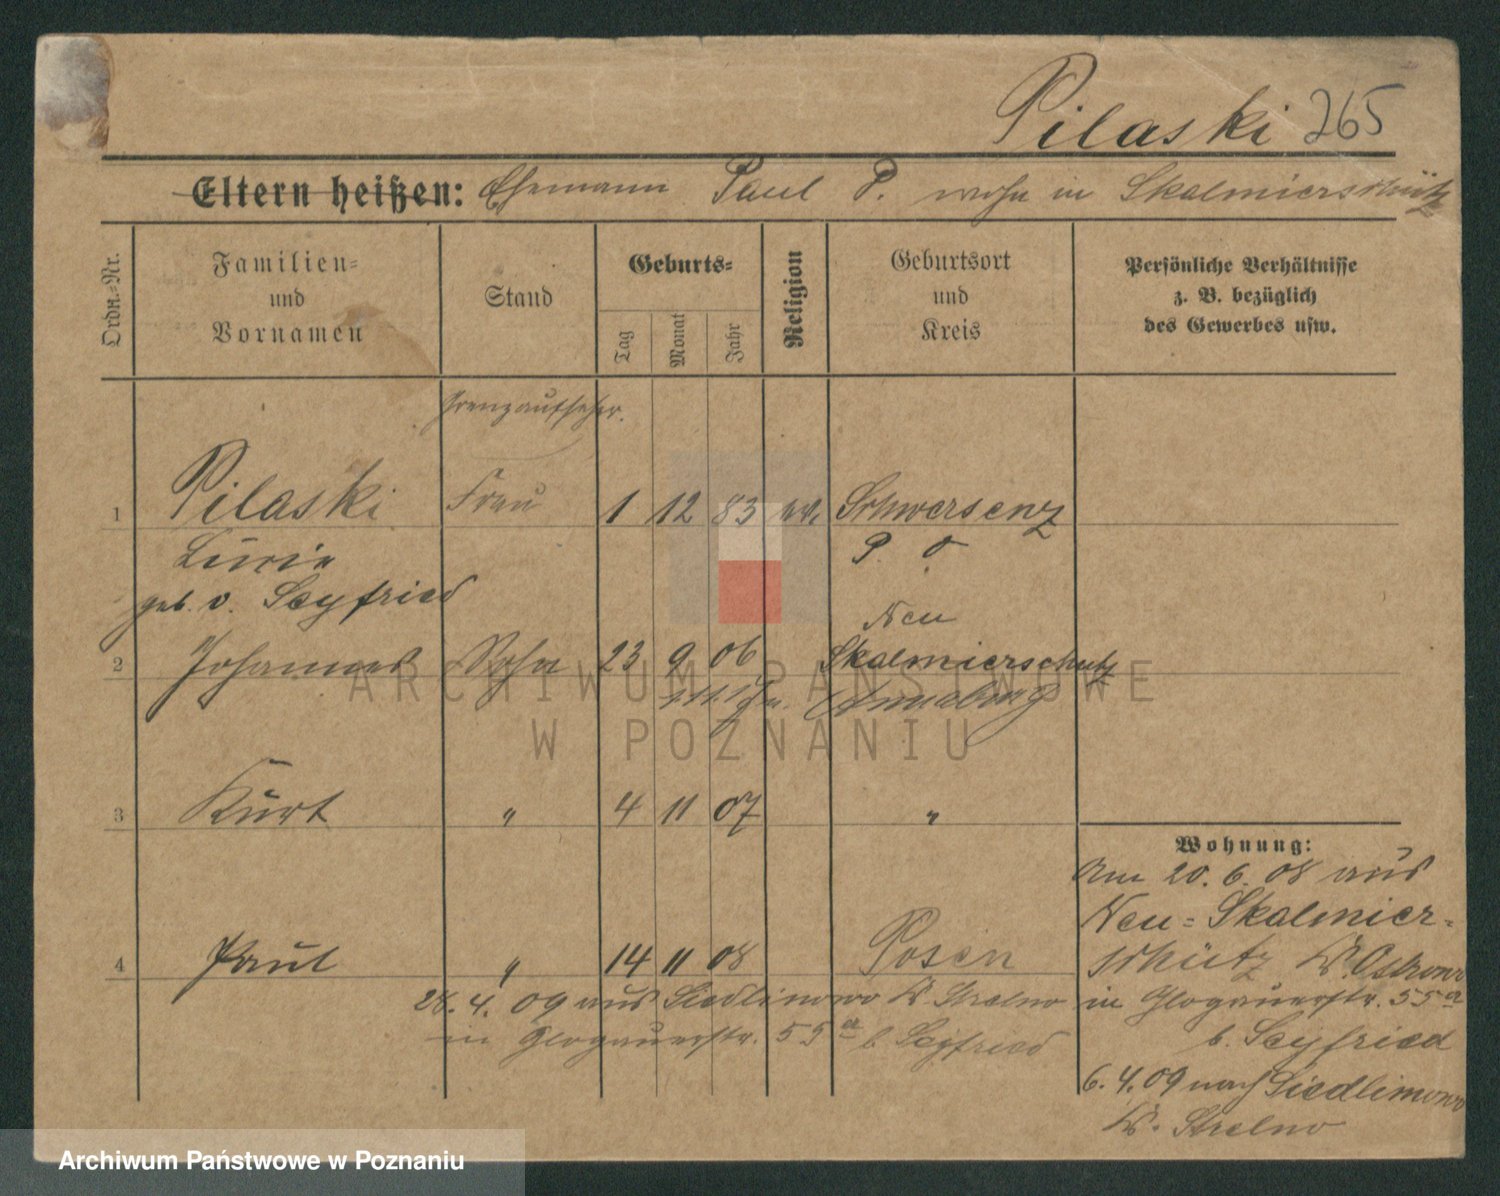 Pilaski 265
Eltern heißen: Ehemann Paul P. wohn in Skalmierschütz
Ordn.-Nr.
Familien-
und
Vornamen
Stand
Geburts-
Tag
Monat
Jahr
Religion
Geburtsort
und
Kreis
Persönliche Verhältnisse
z. B. bezüglich
des Gewerbes usw.
Grenzaufseher.
1 Pilaski Frau 1 12 83 ev. Schwersenz
P. O.
geb. v. Seyfried
Neu
2 Johannes Sohn 23 9 06 Skalmierschutz
3 Kurt " 4 11 07 "
4 Paul " 14 11 08 Posen
28.4.09 aus Siedlimowo Kr. Strelno
in Glogauerstr. 55a b Seyfried
Wohnung:
Am 20.6.08 aus
Neu-Skalmier-
schütz Kr. Ostrowo
in Glogauerstr. 55a
b. Seyfried
6.4.09 nach Siedlimowo
Kr. Strelno
ARCHIWUM PAŃSTWOWE
W POZNANIU
Archiwum Państwowe w Poznaniu